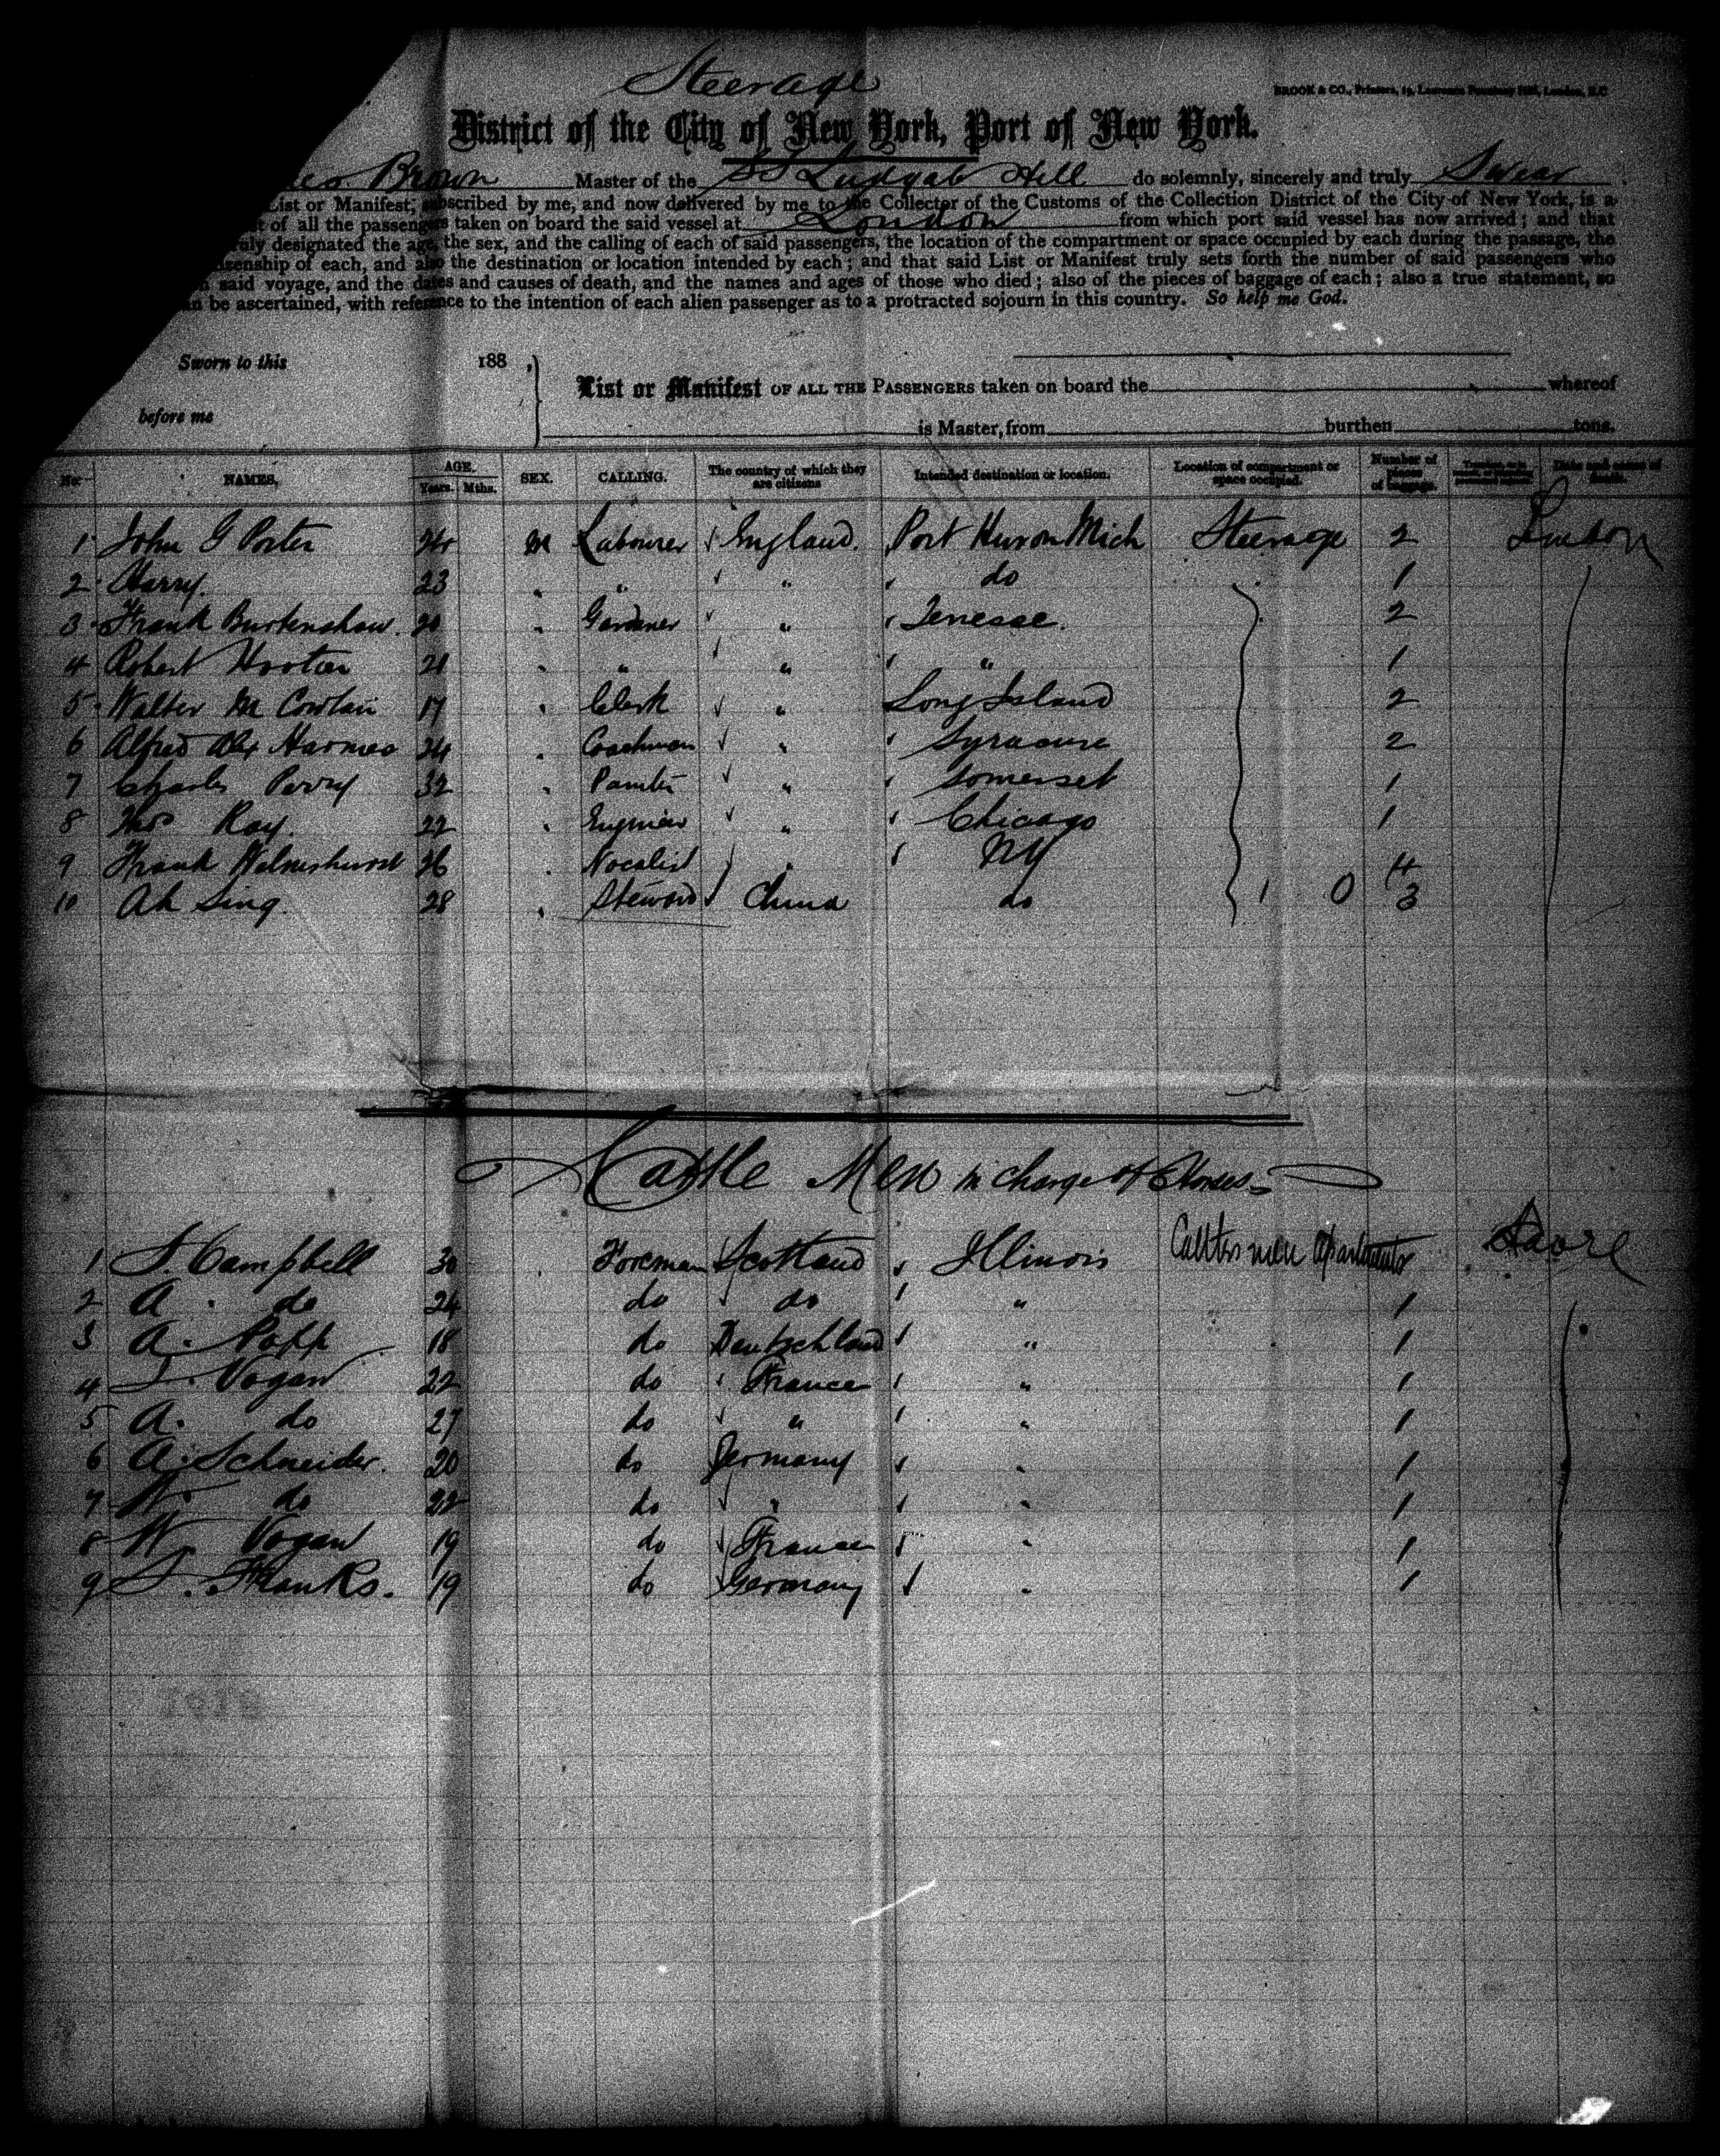 Steerage
BROOK & CO., Printers, 19, Laurence Pountney Hill, London, E.C
District of the City of New York, Port of New York.
Brown Master of the SS Ludgate Hill do solemnly, sincerely and truly Swear
List or Manifest, subscribed by me, and now delivered by me to the Collector of the Customs of the Collection District of the City of New York, is a
of all the passengers taken on board the said vessel at London from which port said vessel has now arrived; and that
truly designated the age, the sex, and the calling of each of said passengers, the location of the compartment or space occupied by each during the passage, the
of each, and also the destination or location intended by each; and that said List or Manifest truly sets forth the number of said passengers who
said voyage, and the dates and causes of death, and the names and ages of those who died; also of the pieces of baggage of each; also a true statement, so
be ascertained, with reference to the intention of each alien passenger as to a protracted sojourn in this country. So help me God.
Sworn to this 188 ,
List or Manifest OF ALL THE PASSENGERS taken on board the whereof
before me
is Master, from burthen tons.
No. NAMES, AGE. Years. Mths. SEX. CALLING. The country of which they are citizens Intended destination or location. Location of compartment or space occupied. Number of pieces of baggage.
1 John G Porter 24 M Labourer England. Port Huron Mich Steerage 2 London
2 Harry. 23 " " " do 1
3 Frank Burtenshaw. 20 " Gardener " Tenesse. 2
4 Robert 21 " " " " 1
5 Walter M 17 " Clerk " Long Island 2
6 Alfred Alex Harmes 24 " Coachman " Syracuse 2
7 Charles Perry 32 " Painter " Somerset 1
8 Thos Ray. 22 " Engineer " Chicago 1
9 Frank Helmshurst 26 " Vocalist " NY 4
10 Ah Sing. 28 " Steward China do 1 0 3
Cattle Men in charge of Horses
1 S. Campbell 30 " Foreman Scotland Illinois Cattle men apartments Havre
2 A. do 24 do do " 1
3 A. Popp 18 do Deutschland " 1
4 S. Vogan 22 do France " 1
5 A. do 27 do " " 1
6 A. Schneider. 20 do Germany " 1
7 W. do 22 do " " 1
8 W. Vogan 19 do France " 1
9 S. Franks. 19 do Germany " 1